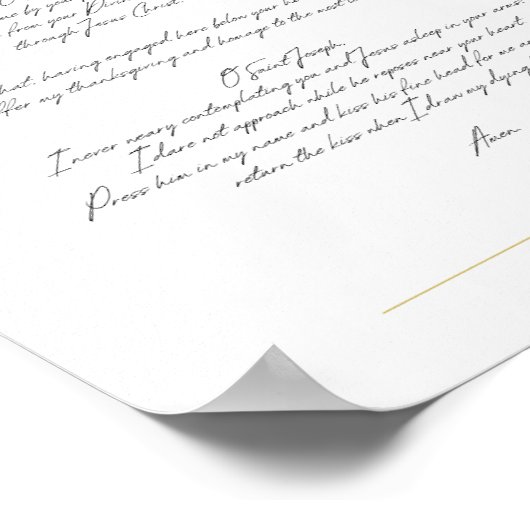 me by your
from your Divine
through Jesus Christ
that, having engaged, here below your
offer my thanksgiving and homage to the most
O Saint Joseph,
I never neary contemplating you and Jesus asleep in your arms.
I dare not approach while he reposes near your heart
Press him in my name and kiss his fine head for me
return the kiss when I draw my dying
Amen